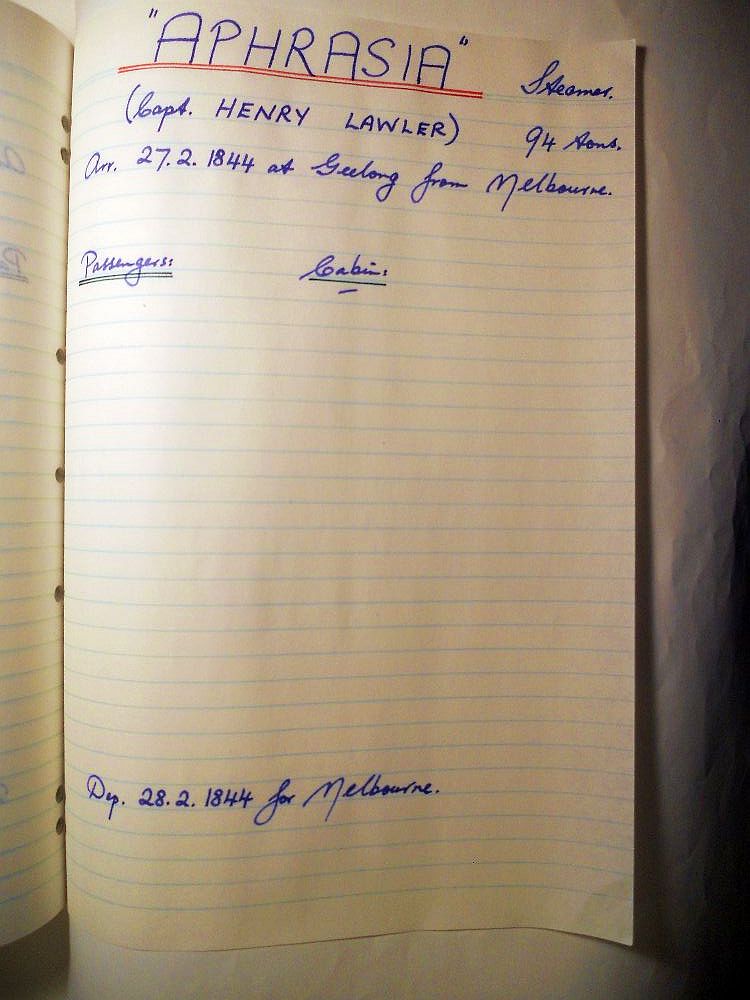 "APHRASIA" Steamer.
(Capt. HENRY LAWLER) 94 tons.
Arr. 27.2.1844 at Geelong from Melbourne.
Passengers: Cabin:
–
Dep. 28.2.1844 for Melbourne.